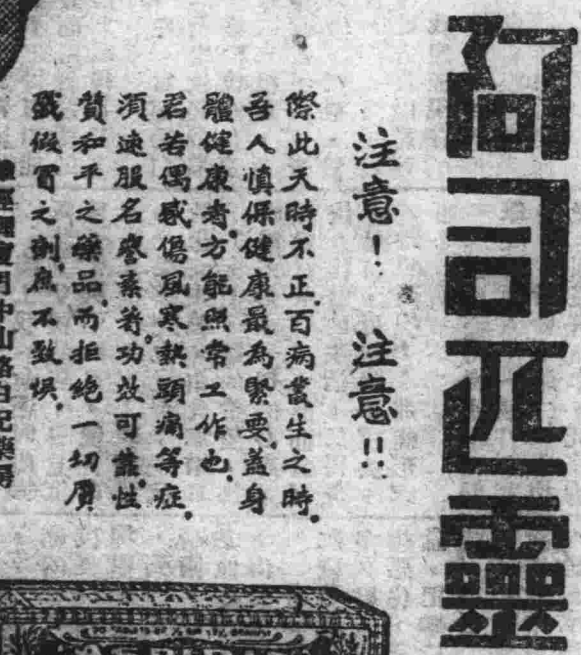 阿司匹靈
注意！ 注意！！
際此天時不正，百病叢生之時，
吾人慎保健康最為緊要，蓋身
體健康者，方能照常工作也，
君若偶感傷風寒熱頭痛等症，
須速服名譽素著，功效可靠，性
質和平之藥品，而拒絕一切贋
或做冒之劑，庶不致悞，
中山路